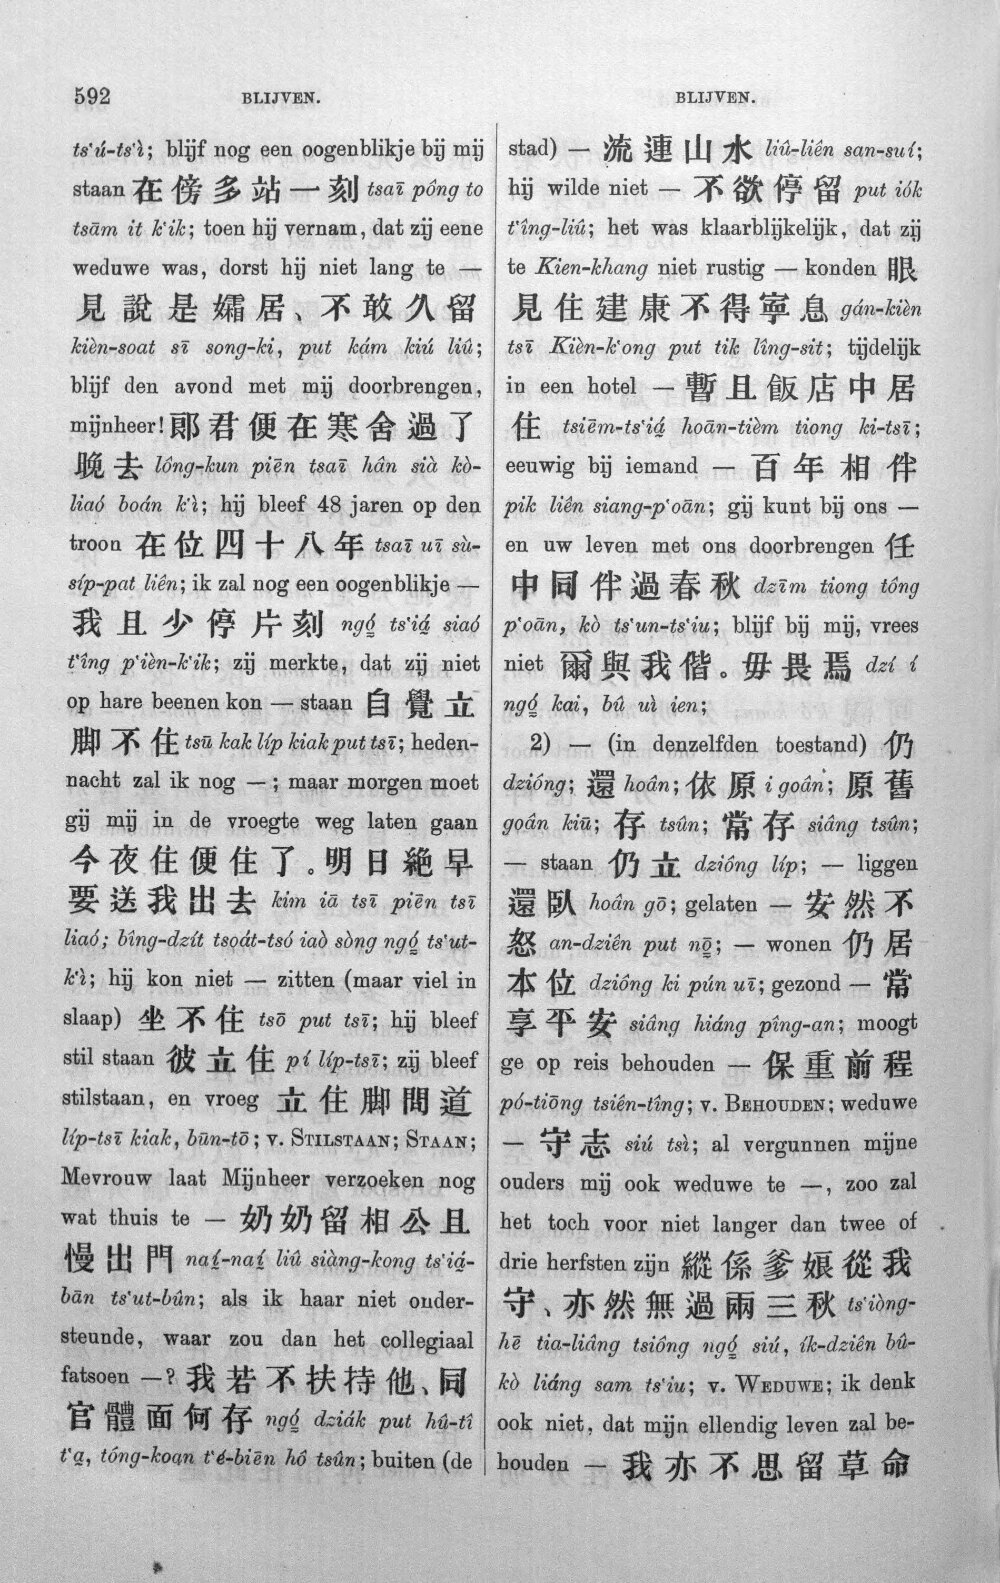 592
BLIJVEN.
BLIJVEN.
ts‘ú-ts‘ì; blijf nog een oogenblikje bij mij
staan 在傍多站一刻 tsaī pông to
tsām it k‘ik; toen hij vernam, dat zij eene
weduwe was, dorst hij niet lang te —
見說是孀居、不敢久留
kièn-soat sī song-ki, put kám kiú liû;
blijf den avond met mij doorbrengen,
mijnheer!郎君便在寒舍過了
晚去 lông-kun piēn tsaī hân sià kò-
liaó boán k‘ì; hij bleef 48 jaren op den
troon 在位四十八年 tsaī uī sù-
síp-pat liên; ik zal nog een oogenblikje —
我且少停片刻 ngó ts‘iá siaó
t‘îng p‘ièn-k‘ik; zij merkte, dat zij niet
op hare beenen kon — staan 自覺立
脚不住 tsū kak líp kiak put tsī; heden-
nacht zal ik nog —; maar morgen moet
gij mij in de vroegte weg laten gaan
今夜住便住了。明日絕早
要送我出去 kim iā tsī piēn tsī
liaó; bîng-dzít tsoát-tsó iaò sòng ngó ts‘ut-
k‘ì; hij kon niet — zitten (maar viel in
slaap) 坐不住 tsō put tsī; hij bleef
stil staan 彼立住 pí líp-tsī; zij bleef
stilstaan, en vroeg 立住脚問道
líp-tsī kiak, būn-tō; v. STILSTAAN; STAAN;
Mevrouw laat Mijnheer verzoeken nog
wat thuis te — 奶奶留相公且
慢出門 naí-naí liû siàng-kong ts‘iá-
bān ts‘ut-bûn; als ik haar niet onder-
steunde, waar zou dan het collegiaal
fatsoen —? 我若不扶持他、同
官體面何存 ngó dziák put hû-tî
t‘a, tóng-koan t‘é-biēn hô tsûn; buiten (de
stad) — 流連山水 liû-liên san-suí;
hij wilde niet — 不欲停留 put iók
t‘îng-liû; het was klaarblijkelijk, dat zij
te Kien-khang niet rustig — konden 眼
見住建康不得寧息 gán-kièn
tsī Kièn-k‘ong put tik lîng-sit; tijdelijk
in een hotel — 暫且飯店中居
住 tsiēm-ts‘iá hoān-tièm tiong ki-tsī;
eeuwig bij iemand — 百年相伴
pik liên siang-p‘oān; gij kunt bij ons —
en uw leven met ons doorbrengen 任
中同伴過春秋 dzīm tiong tông
p‘oān, kò ts‘un-ts‘iu; blijf bij mij, vrees
niet 爾與我偕。毋畏焉 dzí í
ngó kai, bû uì ien;
2) — (in denzelfden toestand) 仍
dzióng; 還 hoân; 依原 i goân; 原舊
goân kiū; 存 tsûn; 常存 siâng tsûn;
— staan 仍立 dzióng líp; — liggen
還臥 hoân gō; gelaten — 安然不
怒 an-dziên put nō; — wonen 仍居
本位 dzióng ki pún uī; gezond — 常
享平安 siâng hiáng pîng-an; moogt
ge op reis behouden — 保重前程
pó-tiōng tsiên-tîng; v. BEHOUDEN; weduwe
— 守志 siú tsì; al vergunnen mijne
ouders mij ook weduwe te —, zoo zal
het toch voor niet langer dan twee of
drie herfsten zijn 縱係爹娘從我
守、亦然無過兩三秋 ts‘iòng-
hē tia-liâng tsiông ngó siú, ík-dziên bû-
kò liáng sam ts‘iu; v. WEDUWE; ik denk
ook niet, dat mijn ellendig leven zal be-
houden — 我亦不思留草命